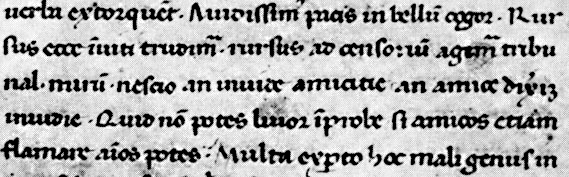 uerba extorquēt. Auidissim̄ pacis in bellū cogor. Rur
sus ecce īuiti trudim̄. rursus ad censoriū agim̄ tribu
nal. mirū. nescio an inuide amicitie. an amice dixeꝫ
inuidie. Quid nō potes liuor īprobe si amicos etiam
flamare aīos potes. Multa exꝑto hoc mali genus in